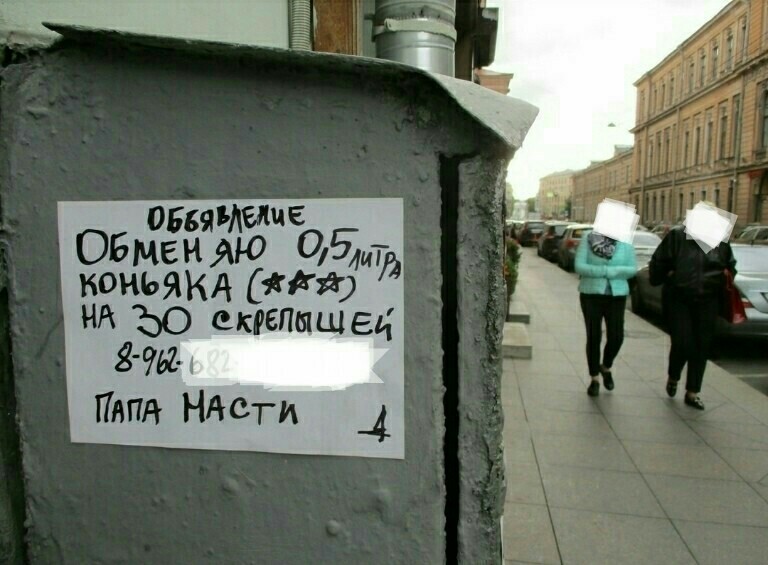 ОБЬЯВЛЕНИЕ
ОБМЕНЯЮ 0,5 ЛИТРА
КОНЬЯКА (★★★)
НА 30 СКРЕПЫЩЕЙ
8-962-682-
ПАПА НАСТИ